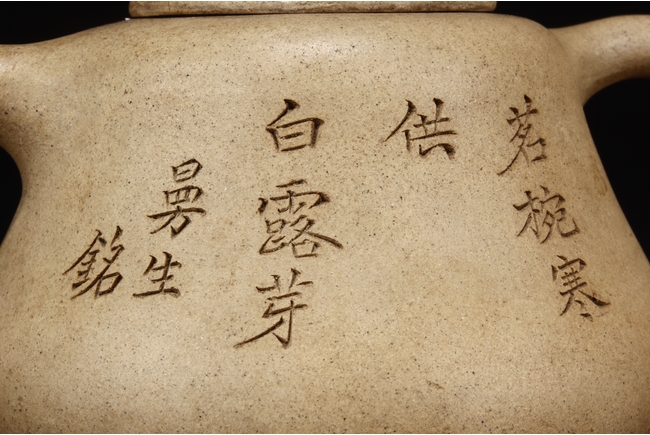 茗椀寒
供
白露芽
曼生
銘